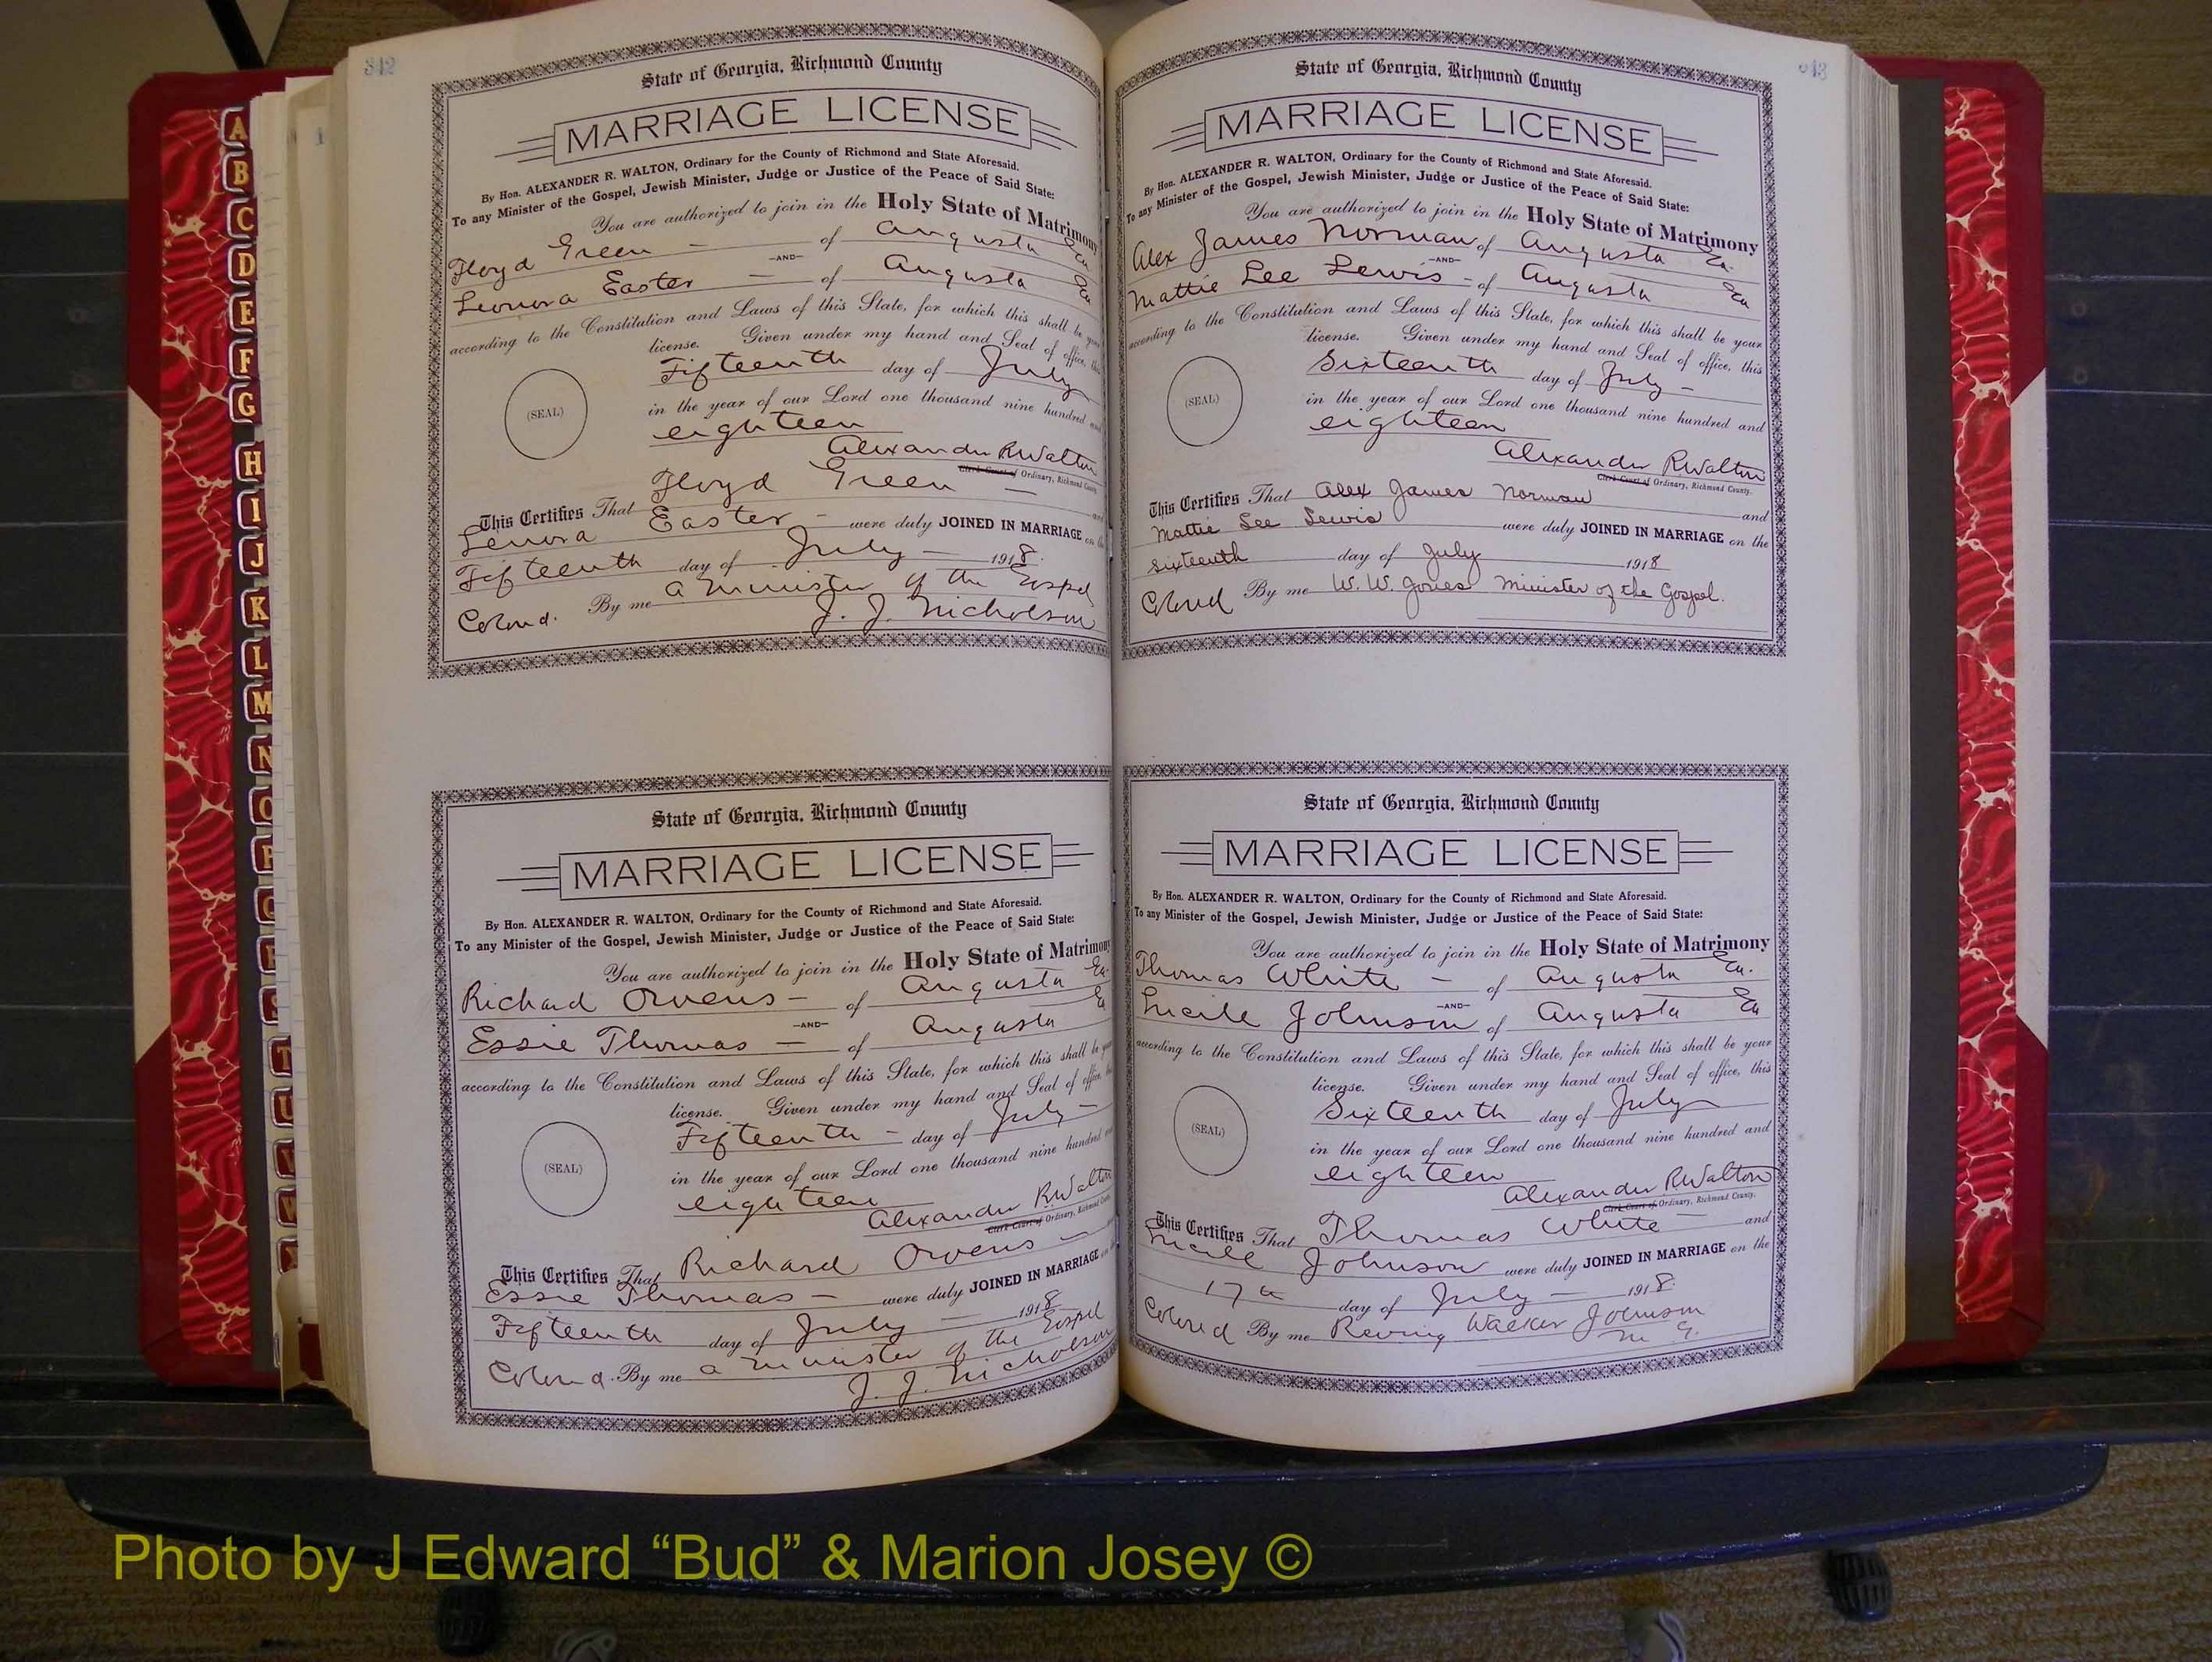 342
State of Georgia, Richmond County
MARRIAGE LICENSE
By Hon. ALEXANDER R. WALTON, Ordinary for the County of Richmond and State Aforesaid.
To any Minister of the Gospel, Jewish Minister, Judge or Justice of the Peace of Said State:
You are authorized to join in the Holy State of Matrimony
Floyd Green - of Augusta Ga
-AND-
Leonora Easter - of Augusta Ga
according to the Constitution and Laws of this State, for which this shall be your
license. Given under my hand and Seal of office, this
(SEAL)
Fifteenth day of July
in the year of our Lord one thousand nine hundred and
eighteen
Alexander R Walton
Clerk Court of Ordinary, Richmond County.
This Certifies That Floyd Green - and
Lenora Easter - were duly JOINED IN MARRIAGE on the
Fifteenth day of July - 1918.
Colored. By me a Minister of the Gospel
J. J. Nicholson
State of Georgia, Richmond County
MARRIAGE LICENSE
By Hon. ALEXANDER R. WALTON, Ordinary for the County of Richmond and State Aforesaid.
To any Minister of the Gospel, Jewish Minister, Judge or Justice of the Peace of Said State:
You are authorized to join in the Holy State of Matrimony
Richard Owens - of Augusta Ga.
-AND-
Essie Thomas - of Augusta Ga
according to the Constitution and Laws of this State, for which this shall be your
license. Given under my hand and Seal of office, this
(SEAL)
Fifteenth - day of July -
in the year of our Lord one thousand nine hundred and
eighteen
Alexander R Walton
Clerk Court of Ordinary, Richmond County.
This Certifies That Richard Owens -
Essie Thomas - were duly JOINED IN MARRIAGE on
Fifteenth day of July - 1918
Colored. By me a Minister of the Gospel
J. J. Nicholson
343
State of Georgia, Richmond County
MARRIAGE LICENSE
By Hon. ALEXANDER R. WALTON, Ordinary for the County of Richmond and State Aforesaid.
To any Minister of the Gospel, Jewish Minister, Judge or Justice of the Peace of Said State:
You are authorized to join in the Holy State of Matrimony
Alex James Norman of Augusta Ga.
-AND-
Mattie Lee Lewis - of Augusta Ga
according to the Constitution and Laws of this State, for which this shall be your
license. Given under my hand and Seal of office, this
(SEAL)
Sixteenth day of July -
in the year of our Lord one thousand nine hundred and
eighteen
Alexander R Walton
Clerk Court of Ordinary, Richmond County.
This Certifies That Alex James Norman and
Mattie Lee Lewis were duly JOINED IN MARRIAGE on the
sixteenth day of July 1918
Colored By me W. W. Jones Minister of the Gospel.
State of Georgia, Richmond County
MARRIAGE LICENSE
By Hon. ALEXANDER R. WALTON, Ordinary for the County of Richmond and State Aforesaid.
To any Minister of the Gospel, Jewish Minister, Judge or Justice of the Peace of Said State:
You are authorized to join in the Holy State of Matrimony
Thomas White - of Augusta Ga.
-AND-
Lucile Johnson of Augusta Ga
according to the Constitution and Laws of this State, for which this shall be your
license. Given under my hand and Seal of office, this
(SEAL)
Sixteenth day of July
in the year of our Lord one thousand nine hundred and
eighteen
Alexander R Walton
Clerk Court of Ordinary, Richmond County.
This Certifies That Thomas White and
Lucile Johnson were duly JOINED IN MARRIAGE on the
17th day of July - 1918.
Colored By me Walker Johnson
M. G.
A
B
C
D
E
F
G
H
I
J
K
L
M
N
O
P
Q
R
S
T
U
V
W
Photo by J Edward “Bud” & Marion Josey ©